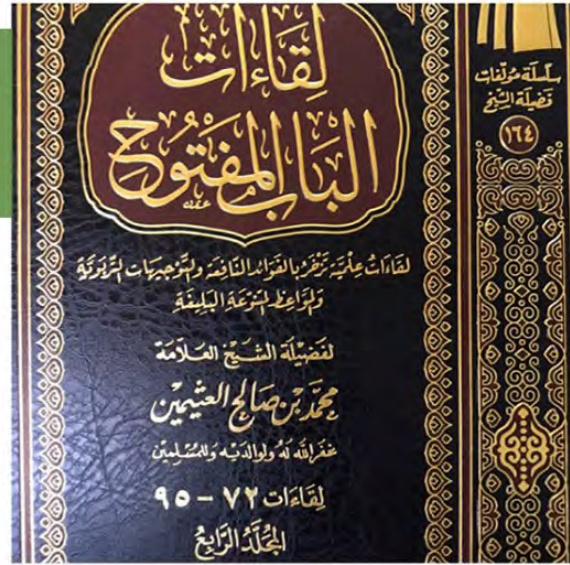 لِقَاءَات
البَابِ المَفْتُوحِ
لقاءَاتٌ عِلْمِيَّة تَزْخَرُ بالفَوَائد النَّافِعَة والتَّوْجِيهَات التَّرْبَوِيَّة
وَالمَوَاعِظ المُتَنَوِّعَةِ البَلِيغَةِ
لفَضِيْلَة الشَّيْخ العَلَّامَة
محمَّد بن صَالح العثيمين
غفَر اللَّه لَهُ ولوالدَيْه وَللمُسْلِمين
لِقَاءَات ٧٢ - ٩٥
المُجَلَّد الرَّابِعُ
سِلْسِلَة مُؤلّفات
فَضِيلَة الشَّيخ
١٦٤